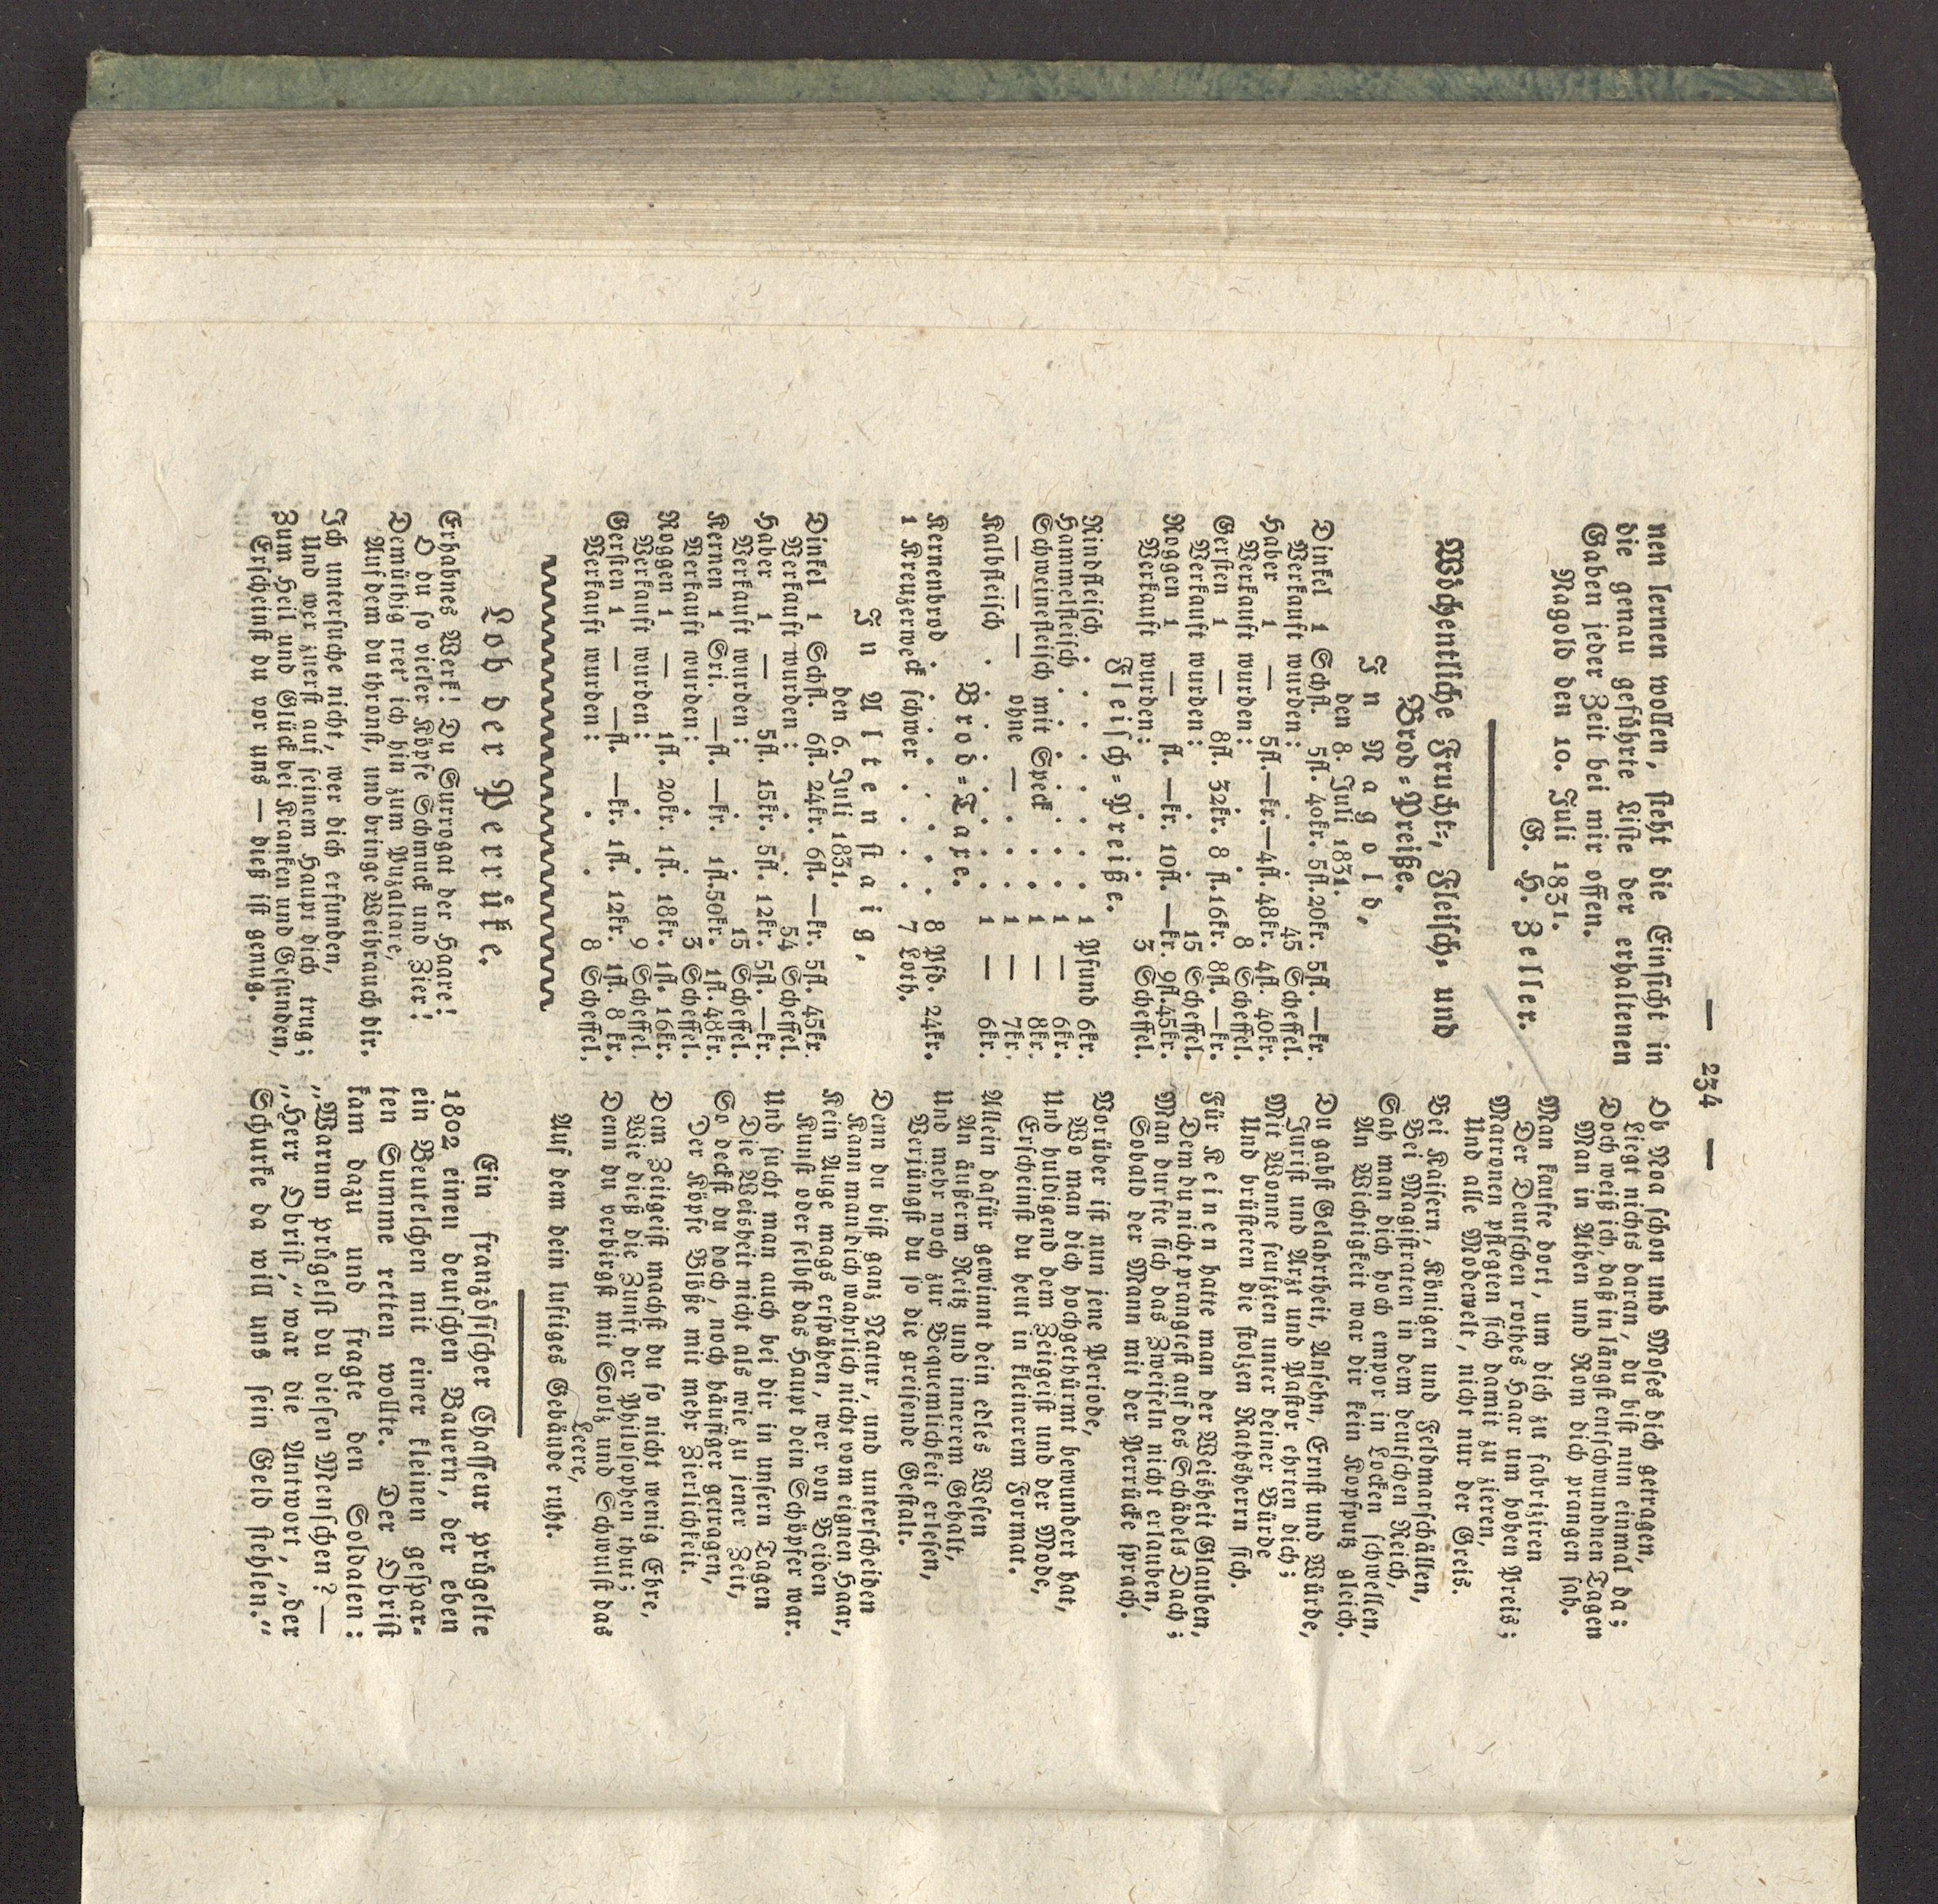 — 234 —
nen lernen wollen, steht die Einsicht in
die genau geführte Liste der erhaltenen
Gaben jeder Zeit bei mir offen.
Nagold den 10. Juli 1831.
G. H. Zeller.
Wöchentliche Frucht-, Fleisch- und
Brod-Preiße.
In Nagold,
den 8. Juli 1831.
Dinkel 1 Schfl. 5fl. 40kr. 5fl. 20kr. 5fl. —kr.
Verkauft wurden: . 45 Scheffel.
Haber 1 — 5fl.—kr.—4fl. 48kr. 4fl. 40kr.
Verkauft wurden: . 8 Scheffel.
Gersten 1 — 8fl. 32kr. 8 fl. 16kr. 8fl. —kr.
Verkauft wurden: . 15 Scheffel.
Roggen 1 — fl. —kr. 10fl. —kr. 9fl. 45kr.
Verkauft wurden: . 3 Scheffel.
Fleisch-Preiße.
Rindfleisch . . . . . . 1 Pfund 6kr.
Hammelfleisch . . . . . 1 — 6kr.
Schweinefleisch mit Speck . . 1 — 8kr.
— — — ohne — . . 1 — 7kr.
Kalbfleisch . . . . . 1 — 6kr.
Brod-Taxe.
Kernenbrod . . . . . 8 Pfd. 24kr.
1 Kreuzerweck schwer . . . . 7 Loth.
In Altenstaig,
den 6. Juli 1831.
Dinkel 1 Schfl. 6fl. 24kr. 6fl. —kr. 5fl. 45kr.
Verkauft wurden: . 54 Scheffel.
Haber 1 — 5fl. 15kr. 5fl. 12kr. 5fl. —kr.
Verkauft wurden: . 15 Scheffel.
Kernen 1 Sri. —fl. —kr. 1fl. 50kr. 1fl. 48kr.
Verkauft wurden: . 3 Scheffel.
Roggen 1 — 1fl. 20kr. 1fl. 18kr. 1fl. 16kr.
Verkauft wurden: . 9 Scheffel.
Gersten 1 — —fl. —kr. 1fl. 12kr. 1fl. 8 kr.
Verkauft wurden: . . 8 Scheffel.
Lob der Perrüke.
Erhabnes Werk! Du Surrogat der Haare!
O du so vieler Köpfe Schmuck und Zier!
Demüthig tret' ich hin zum Puzaltare,
Auf dem du thronst, und bringe Weihrauch dir.
Ich untersuche nicht, wer dich erfunden,
Und wer zuerst auf seinem Haupt dich trug;
Zum Heil und Glück bei Kranken und Gesunden,
Erscheinst du vor uns — dieß ist genug.
Ob Noa schon und Moses dich getragen,
Liegt nichts daran, du bist nun einmal da;
Doch weiß ich, daß in längst entschwundnen Tagen
Man in Athen und Rom dich prangen sah.
Man kaufte dort, um dich zu fabriziren
Der Deutschen rothes Haar um hohen Preis;
Matronen pflegten sich damit zu zieren,
Und alle Modewelt, nicht nur der Greis.
Bei Kaisern, Königen und Feldmarschällen,
Bei Magistraten in dem deutschen Reich,
Sah man dich hoch empor in Locken schwellen,
An Wichtigkeit war dir kein Kopfputz gleich.
Du gabst Gelahrtheit, Ansehn, Ernst und Würde,
Jurist und Arzt und Pastor ehrten dich;
Mit Wonne seufzten unter deiner Bürde
Und brüsteten die stolzen Rathsherrn sich.
Für Keinen hatte man der Weisheit Glauben,
Dem du nicht prangtest auf des Schädels Dach;
Man durfte sich das Zweifeln nicht erlauben,
Sobald der Mann mit der Perrücke sprach.
Vorüber ist nun jene Periode,
Wo man dich hochgethürmt bewundert hat,
Und huldigend dem Zeitgeist und der Mode,
Erscheinst du heut in kleinerem Format.
Allein dafür gewinnt dein edles Wesen
An äußerm Reiz und innerem Gehalt,
Und mehr noch zur Bequemlichkeit erlesen,
Verjüngst du so die greisende Gestalt.
Denn du bist ganz Natur, und unterscheiden
Kann man dich wahrlich nicht vom eignen Haar,
Kein Auge mags erspähen, wer von Beiden
Kunst oder selbst das Haupt dein Schöpfer war.
Und sucht man auch bei dir in unsern Tagen
Die Weisheit nicht als wie zu jener Zeit,
So deckst du doch, noch häufiger getragen,
Der Köpfe Blöße mit mehr Zierlichkeit.
Dem Zeitgeist machst du so nicht wenig Ehre,
Wie dieß die Zunft der Philosophen thut;
Denn du verbirgst mit Stolz und Schwulst das
Leere,
Auf dem dein luftiges Gebäude ruht.
Ein französischer Chasseur prügelte
1802 einen deutschen Bauern, der eben
ein Beutelchen mit einer kleinen gespar-
ten Summe retten wollte. Der Obrist
kam dazu und fragte den Soldaten:
„Warum prügelst du diesen Menschen? —
„Herr Obrist,“ war die Antwort, „der
Schurke da will uns sein Geld stehlen.“